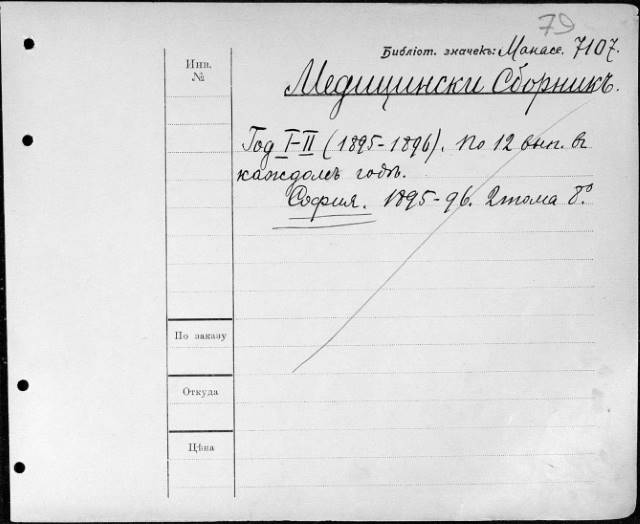 79
Библіот. значекъ: Манасе. 7107.
Инв.
№
Медицински Сборникъ.
Год I-II (1895-1896). По 12 вып. въ
каждомъ годѣ.
София. 1895-96. 2 тома 8º
По заказу
Откуда
Цѣна